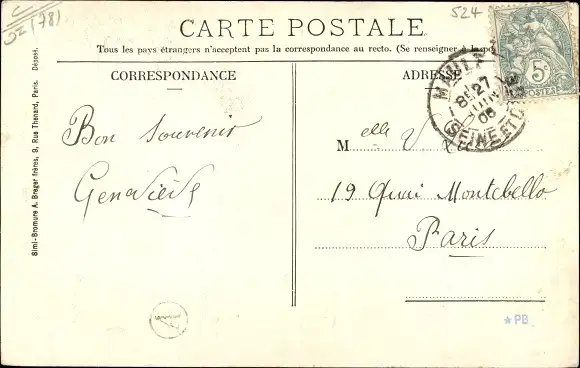 C
52(78)
524
CARTE POSTALE
Tous les pays étrangers n'acceptent pas la correspondance au recto. (Se renseigner à la pos
CORRESPONDANCE
ADRESSE
5c
POSTES
8E 27
06
SEINE ET
Bon Souvenir
Geneviève
Melle V
19 Quai Montebello
Paris
Simi-Bromure A. Breger frères, 9, Rue Thénard, Paris. Déposé.
PB